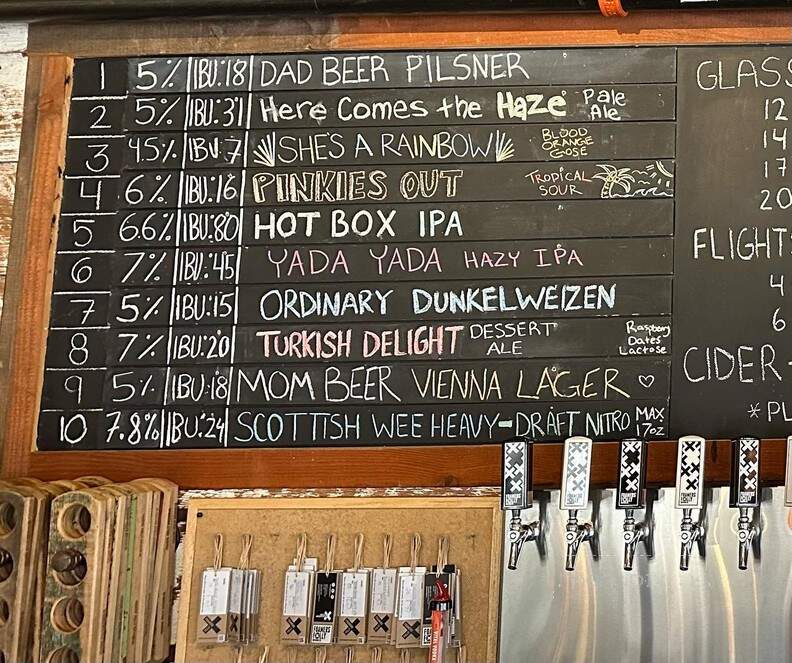 1 5% IBU:18 DAD BEER PILSNER
2 5% IBU:31 Here Comes the Haze Pale Ale
3 4.5% IBU:7 SHE'S A RAINBOW BLOOD ORANGE GOSE
4 6% IBU:16 PINKIES OUT TROPICAL SOUR
5 6.6% IBU:80 HOT BOX IPA
6 7% IBU:45 YADA YADA HAZY IPA
7 5% IBU:15 ORDINARY DUNKELWEIZEN
8 7% IBU:20 TURKISH DELIGHT DESSERT ALE Raspberry Dates Lactose
9 5% IBU:18 MOM BEER VIENNA LAGER ♡
10 7.8% IBU:24 SCOTTISH WEE HEAVY-DRAFT NITRO MAX 17oz
GLASS
12
14
17
20
FLIGHT
4
6
CIDER-
*PL